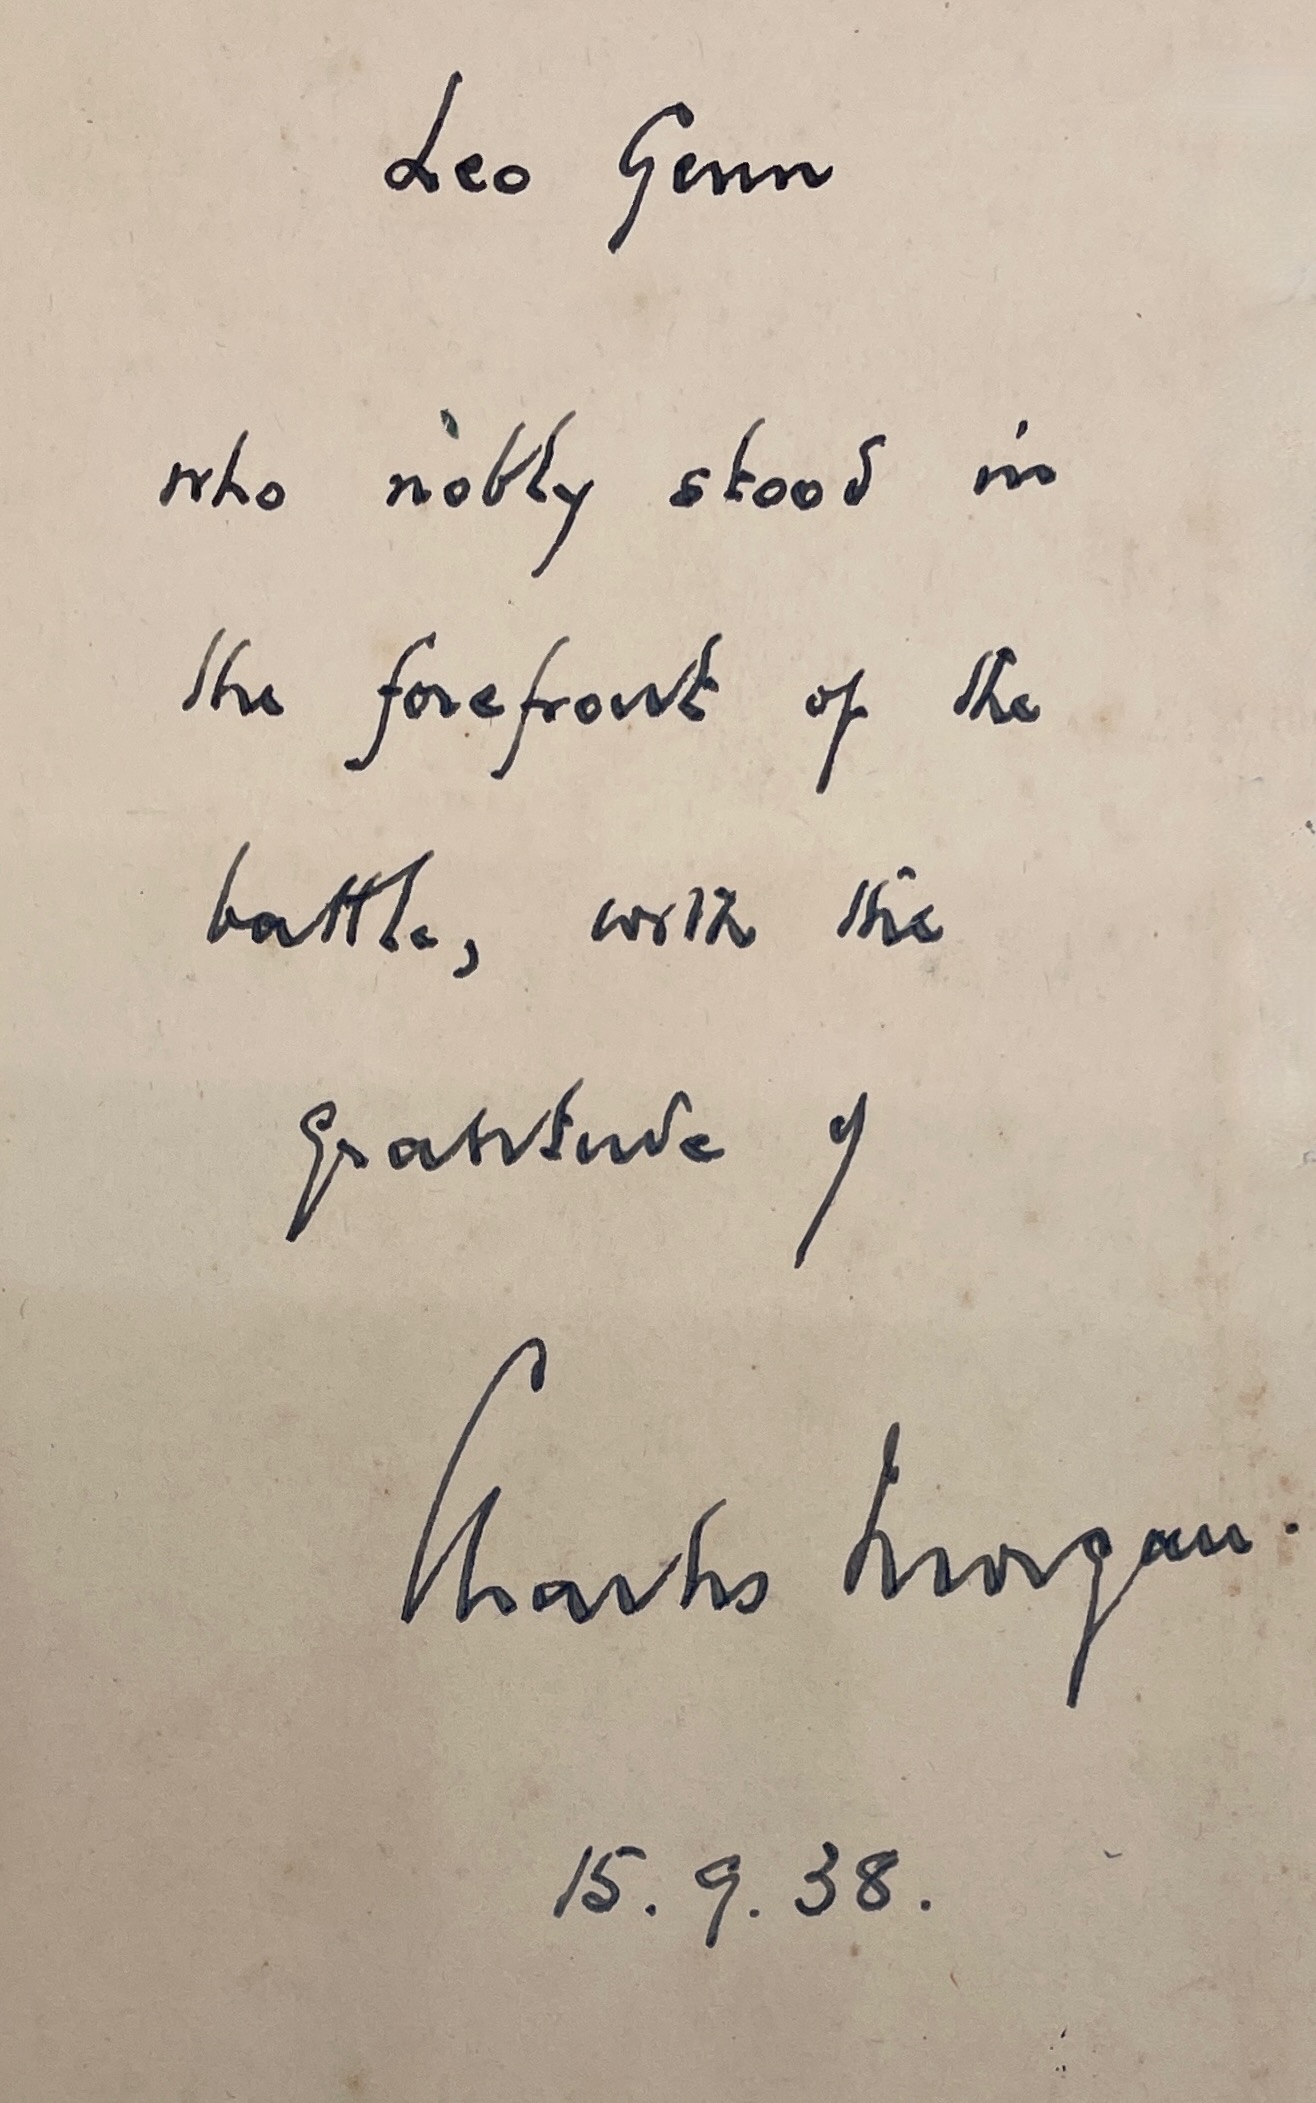 Leo Genn
who nobly stood in
the forefront of the
battle, with the
gratitude of
Charles Morgan.
15. 9. 38.